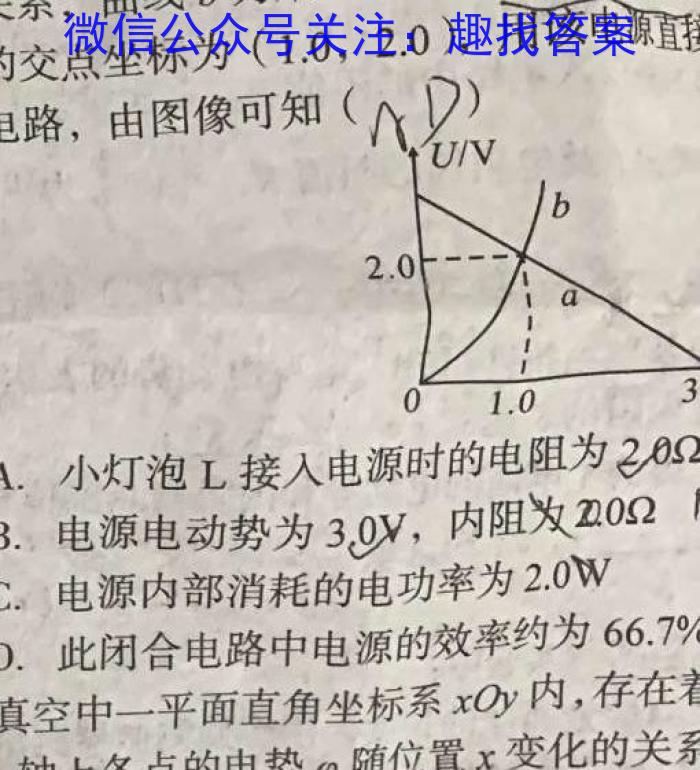 微信公众号关注：趣找答案
的交点坐标为（1.0，2.0）
源直接
电路，由图像可知（AD）
U/V
b
2.0
a
0
1.0
3
A. 小灯泡 L 接入电源时的电阻为 2.0Ω
B. 电源电动势为 3.0V，内阻为 2.0Ω
C. 电源内部消耗的电功率为 2.0W
D. 此闭合电路中电源的效率约为 66.7%
真空中一平面直角坐标系 xOy 内，存在着
轴上各点的电势 φ 随位置 x 变化的关系